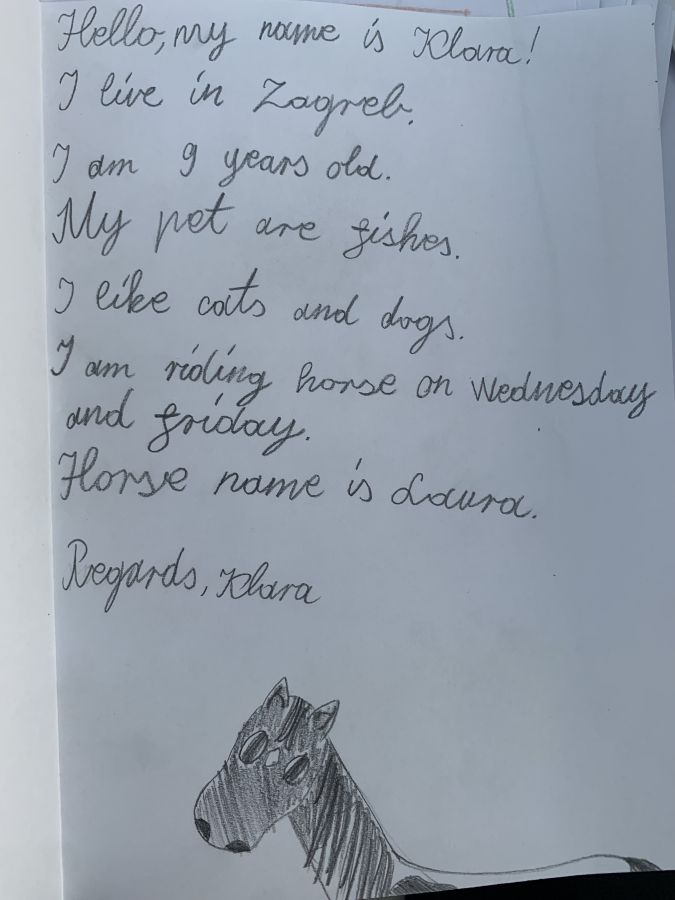 Hello, my name is Klara!
I live in Zagreb.
I am 9 years old.
My pet are fishes.
I like cats and dogs.
I am riding horse on Wednesday
and friday.
Horse name is Laura.
Regards, Klara